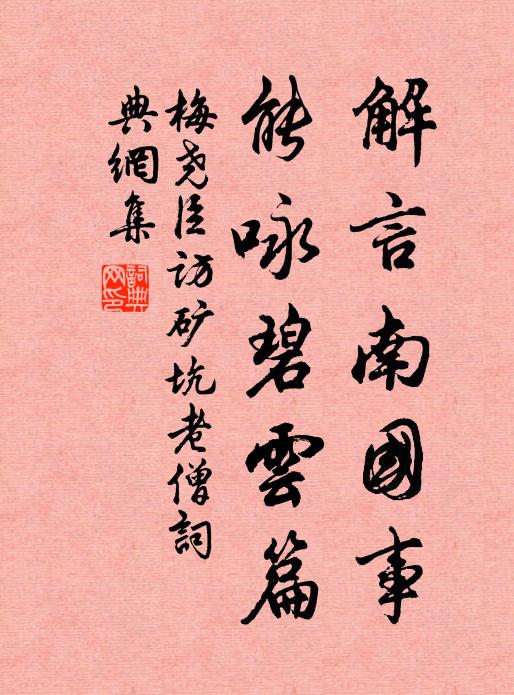 解言南國事
能咏碧雲篇
梅尧臣访矿坑老僧詞
典網集
詞典
网印